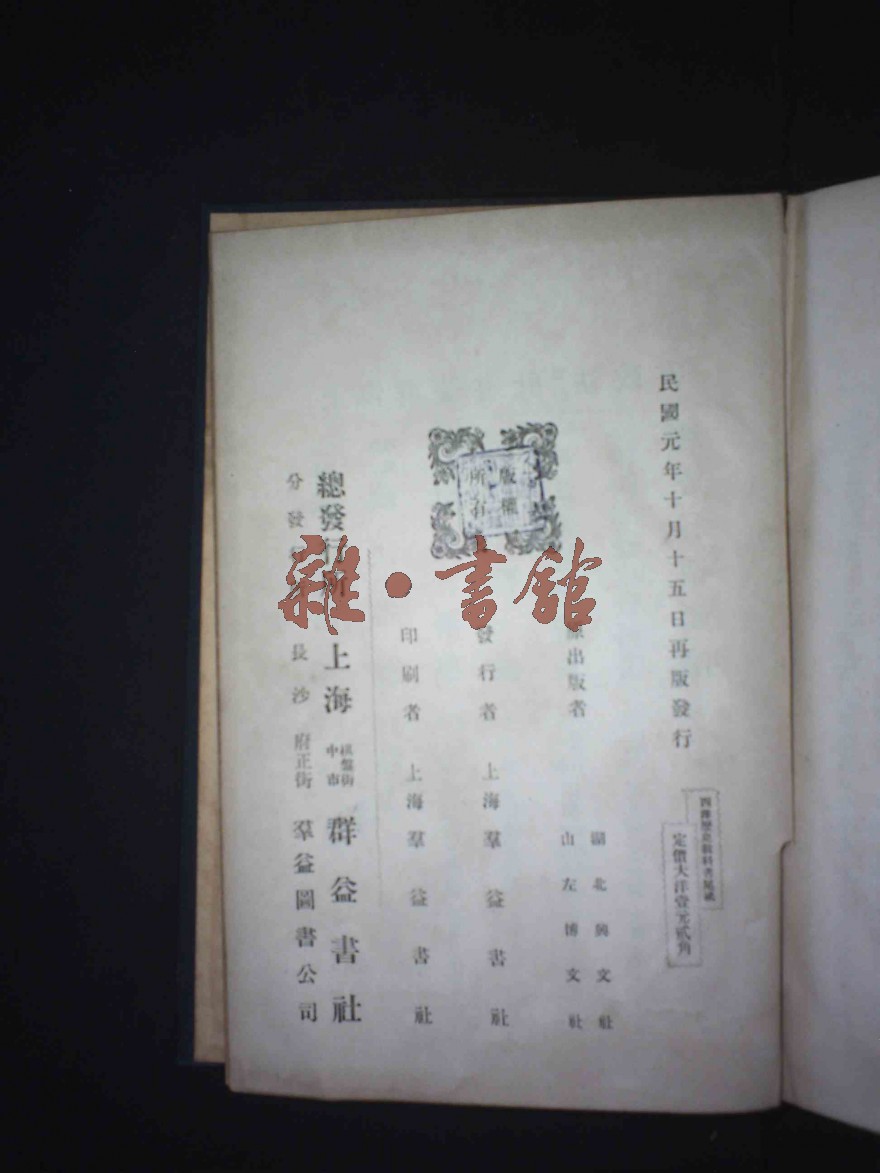 民國元年十月十五日再版發行
西洋歷史教科書尾貳
定價大洋壹元貳角
原出版者
湖北興文社
山左博文社
發行者 上海羣益書社
印刷者 上海羣益書社
版權所有
總發行所 上海 棋盤街中市 群益書社
分發行所 長沙 府正街 羣益圖書公司
雜·書館